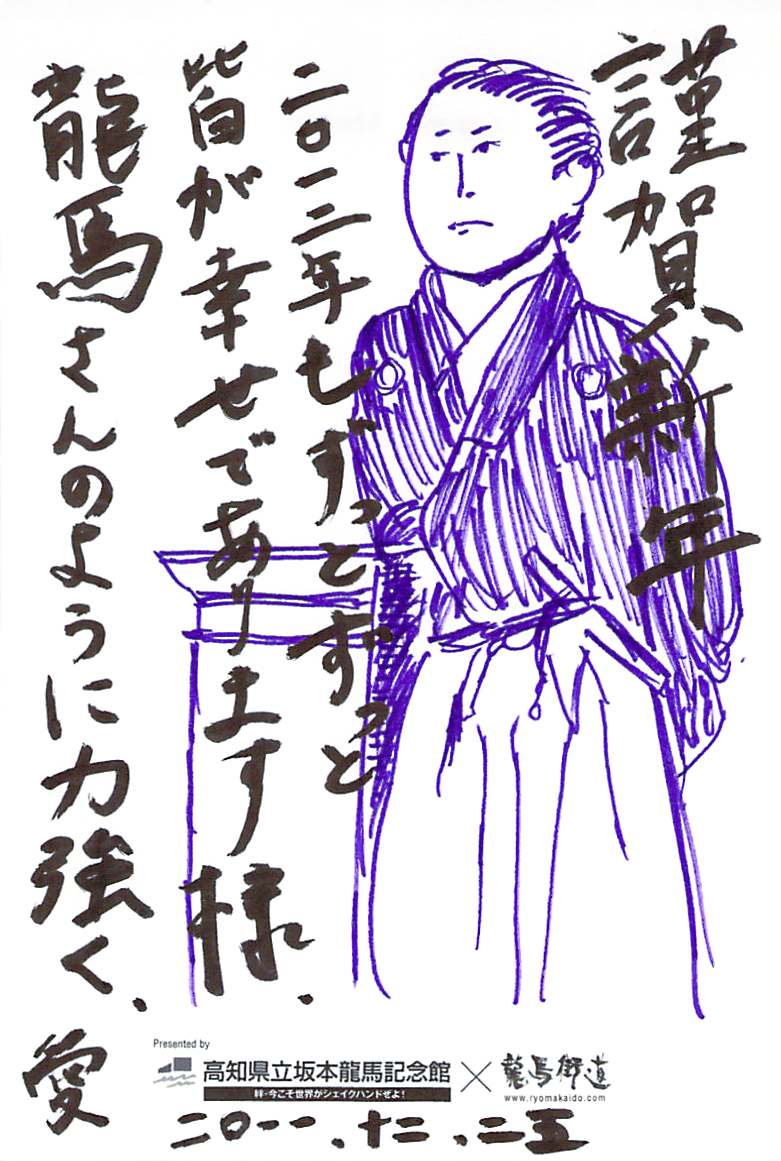 謹賀新年
二〇一二年もずっとずっと
皆が幸せであります様.
龍馬さんのように力強く、愛
Presented by
高知県立坂本龍馬記念館 × 龍馬街道
絆・今こそ世界がシェイクハンドせよ!
www.ryomakaido.com
二〇一一、十二、二五